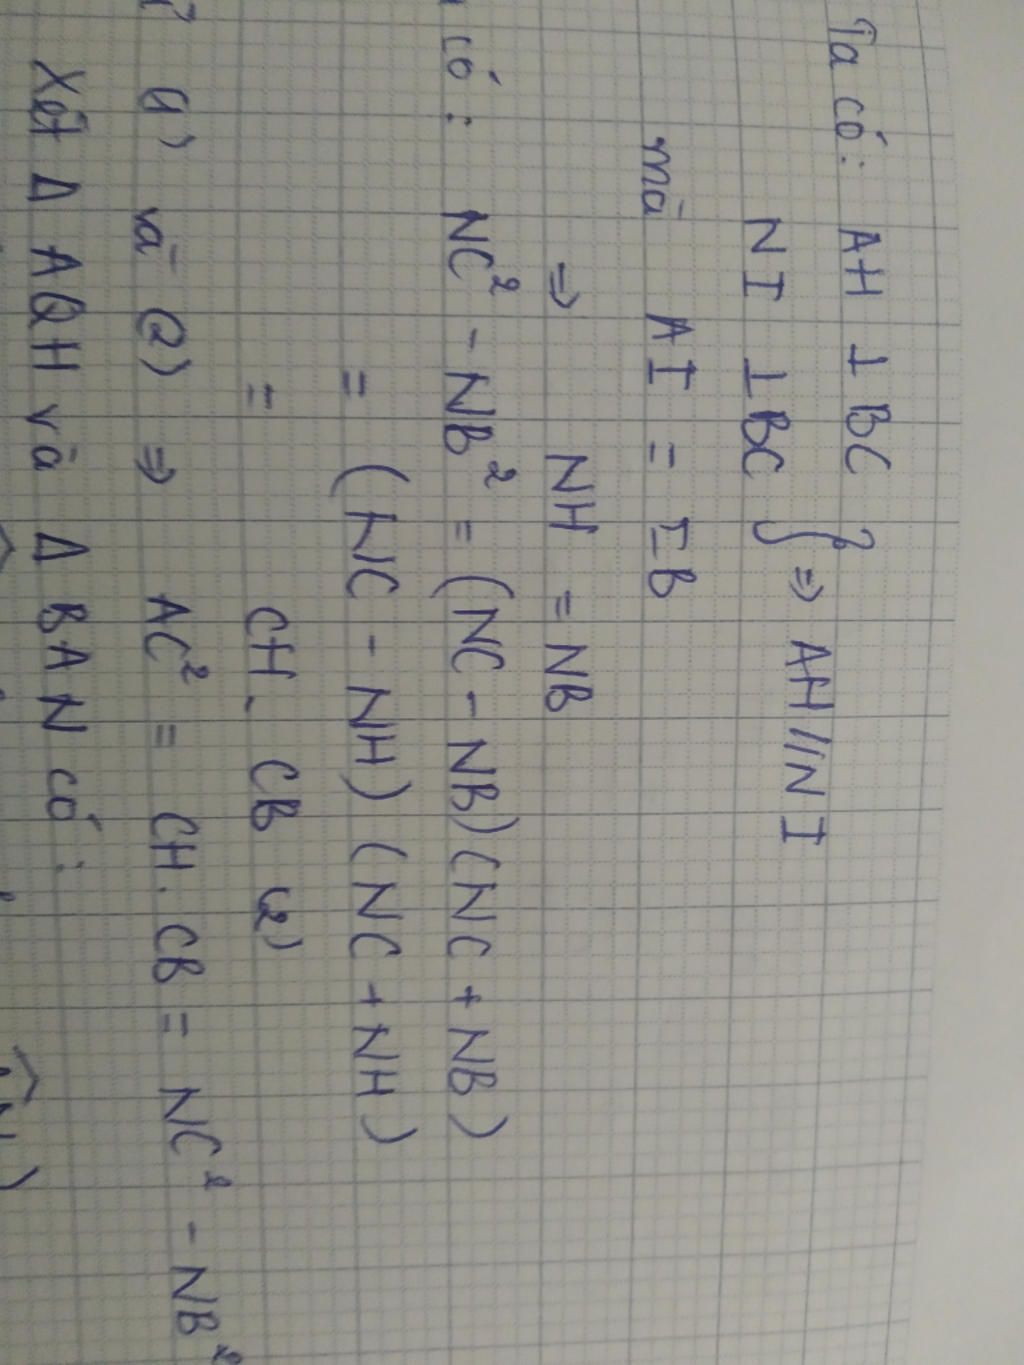 Ta có: AH ⊥ BC
NI ⊥ BC } => AH // NI
mà AI = IB
=> NH = NB
có: NC² - NB² = (NC - NB)(NC + NB)
= (NC - NH)(NC + NH)
= CH. CB (2)
(1) và (2) => AC² = CH. CB = NC² - NB²
Xét Δ AQH và Δ BAN có: